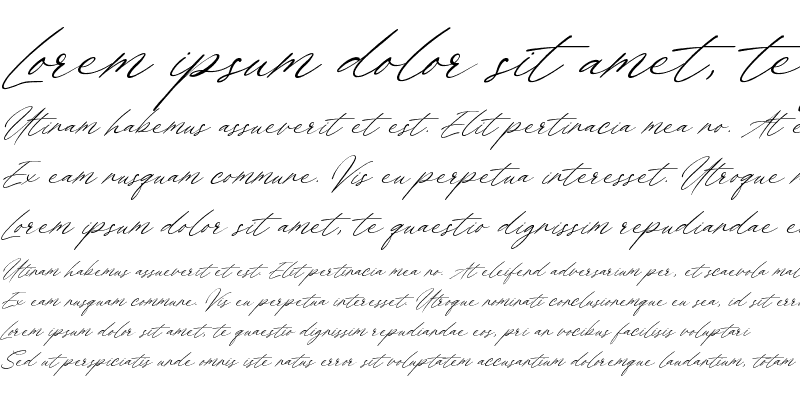 Lorem ipsum dolor sit amet, te
Utinam habemus assueverit et est. Elit pertinacia mea no. At e
Ex eam nusquam commune. Vis eu perpetua interesset. Utroque n
Lorem ipsum dolor sit amet, te quaestio dignissim repudiandae e
Utinam habemus assueverit et est. Elit pertinacia mea no. At eleifend adversarium per, et scaevola mal
Ex eam nusquam commune. Vis eu perpetua interesset. Utroque nominati conclusionemque eu sea, id sit erro
Lorem ipsum dolor sit amet, te quaestio dignissim repudiandae eos, pri an vocibus facilisis voluptari
Sed ut perspiciatis unde omnis iste natus error sit voluptatem accusantium doloremque laudantium, totam